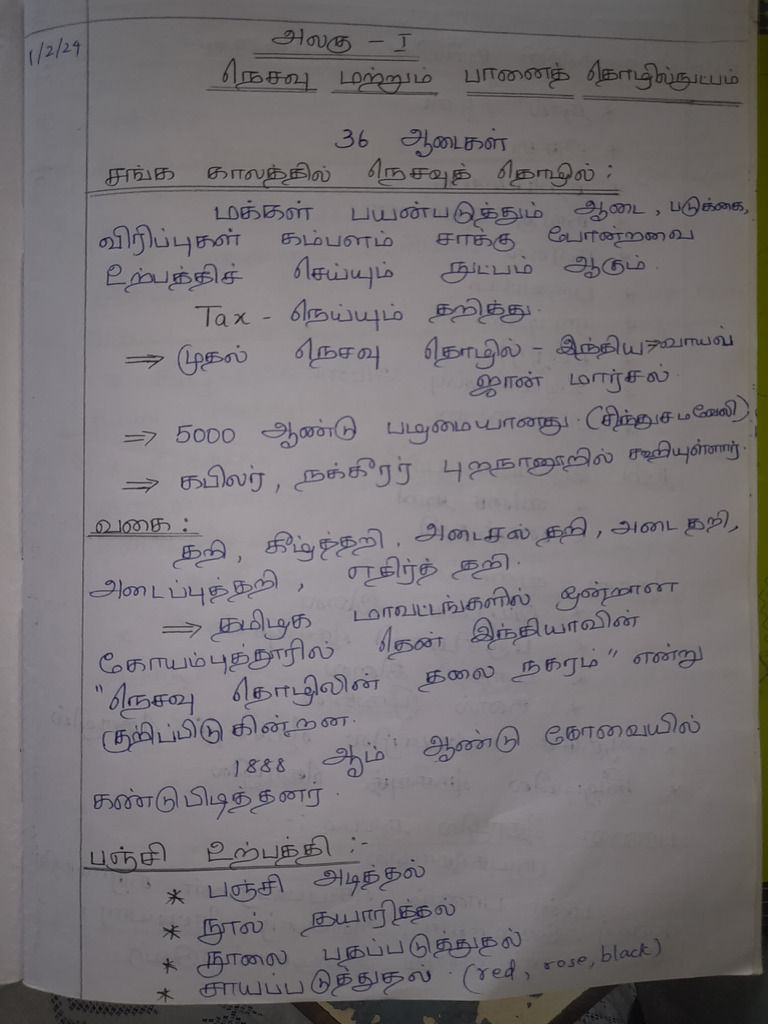 1/2/24
அலகு - I
நெசவு மற்றும் பானைத் தொழில்நுட்பம்
36 ஆடைகள்
சங்க காலத்தில் நெசவுத் தொழில் :
மக்கள் பயன்படுத்தும் ஆடை, படுக்கை,
விரிப்புகள் கம்பளம் சாக்கு போன்றவை
உற்பத்திச் செய்யும் நுட்பம் ஆகும்.
Tax - நெய்யும் தறித்து.
⇒ முதல் நெசவு தொழில் - இந்திய ⇒ வாயவ்
ஜான் மார்சல்.
⇒ 5000 ஆண்டு பழமையானது. (சிந்துசமவேலி)
⇒ கபிலர், நக்கீரர் புறநானூறில் கூறியுள்ளார்.
வகை :
தறி, கீழ்த்தறி, அடைசல் தறி, அடை தறி,
அடைப்புத்தறி, எதிர்த் தறி.
⇒ தமிழக மாவட்டங்களில் ஒன்றான
கோயம்புத்தூரில் தென் இந்தியாவின்
"நெசவு தொழிலின் தலை நகரம்" என்று
குறிப்பிடுகின்றன.
1888 ஆம் ஆண்டு கோவையில்
கண்டுபிடித்தனர்.
பஞ்சி உற்பத்தி :-
* பஞ்சி அடித்தல்
* நூல் தயாரித்தல்
* நூலை பதப்படுத்துதல்
* சாயப்படுத்துதல். (red, rose, black)